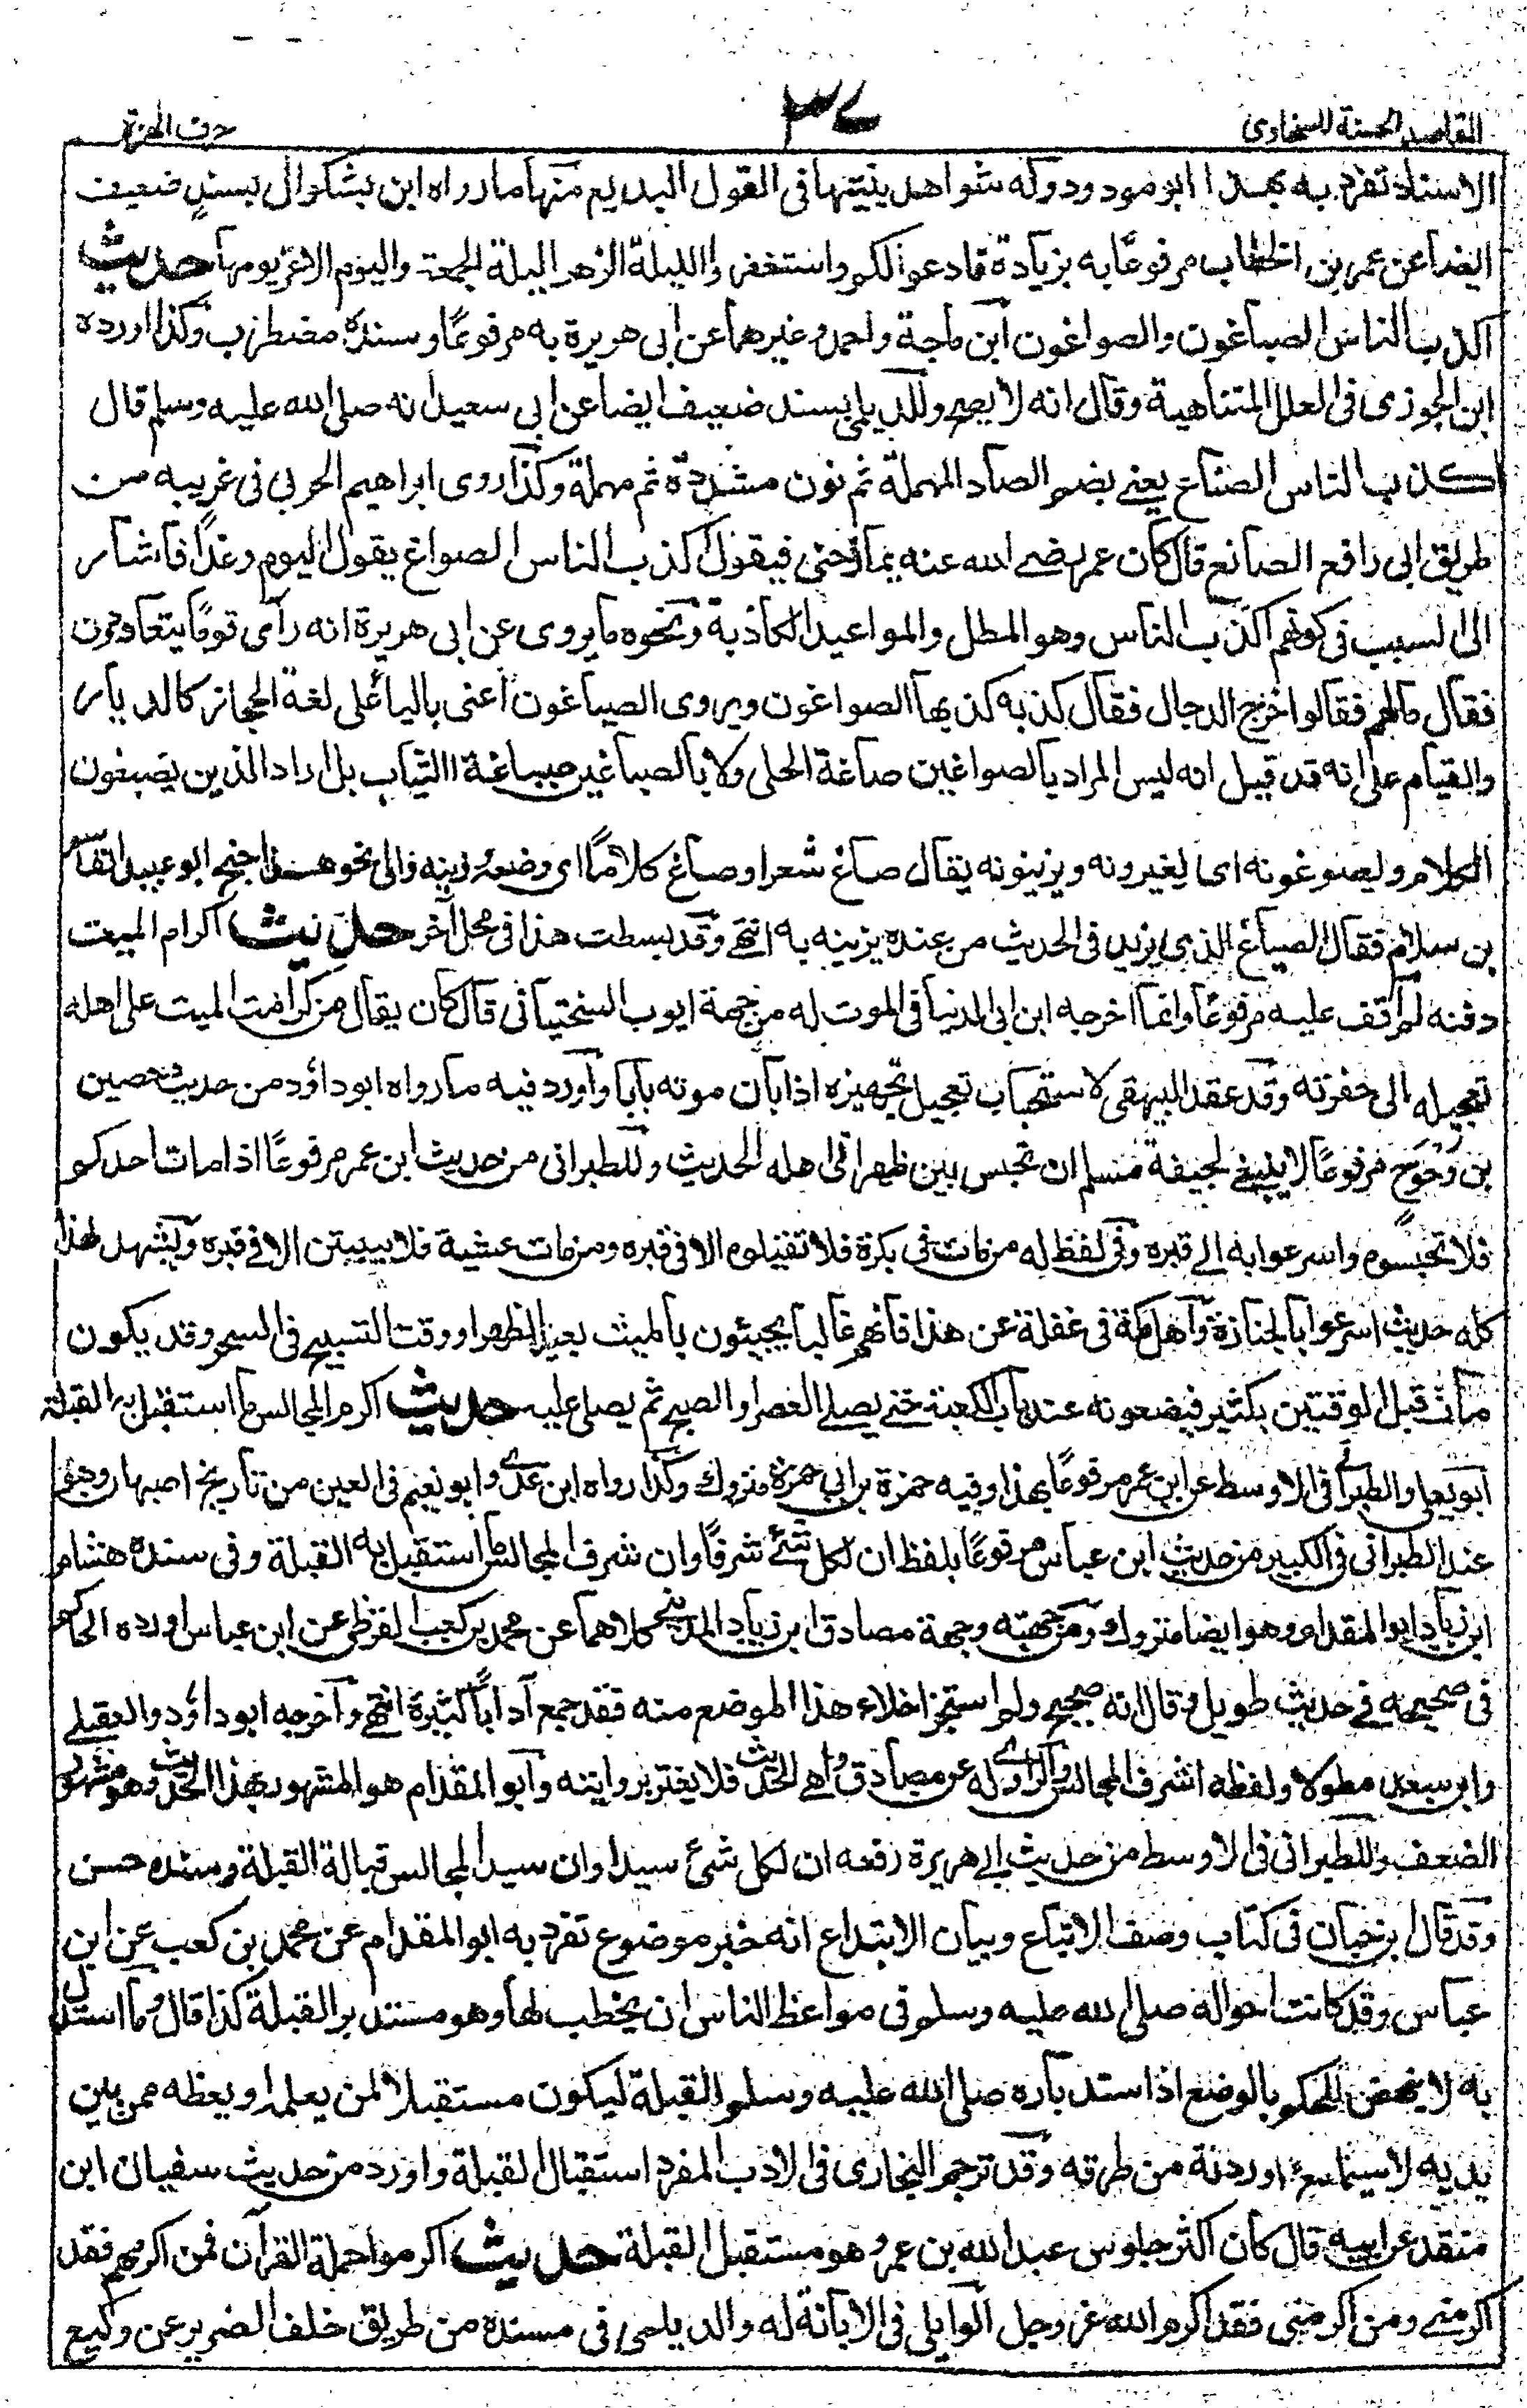 المقاصد الحسنة للسخاوى
٣٧
حرف الهمزة
الاسناد تفرد به بهذا ابو مودود وله شواهد بينتها فى القول البديع منها ما رواه ابن بشكوال بسند ضعيف
ايضا عن عمر بن الخطاب مرفوعًا به بزيادة فادعو لكم واستغفر والليلة الزهرا ليلة الجمعة واليوم الاغر يومها حديث
اكذب الناس الصباغون والصواغون ابن ماجة واحمد وغيرهما عن ابى هريرة به مرفوعًا وسنده مضطرب وكذا اورده
ابن الجوزى فى العلل المتناهية وقال انه لا يصح وللديلمى بسند ضعيف ايضا عن ابى سعيد انه صلى الله عليه وسلم قال
اكذب الناس الصناع يعنے بضم الصاد المهملة ثم نون مشددة ثم مهملة وكذا روى ابراهيم الحربى فى غريبه من
طريق ابى رافع الصائع قال كان عمر رضے الله عنه يمازحنى فيقول اكذب الناس الصواغ يقول اليوم وغدًا فاشار
الى السبب فى كونهم اكذب الناس وهو المطل والمواعيد الكاذبة ونحوه ما يروى عن ابى هريرة انه رأى قومًا يتعادون
فقال ما لهم فقالوا خرج الدجال فقال كذبه كذبها الصواغون ويروى الصياغون اعنى بالياء على لغة الحجاز كالديار
والقيام على انه قد قيل انه ليس المراد بالصواغين صاغة الحلى ولا بالصباغين صباغة الثياب بل اراد الذين يصبغون
الكلام ويصوغونه اى يغيرونه ويزينونه يقال صاغ شعرا وصاغ كلامًا اى وضعه وزينه والى نحو هذا جنح ابو عبيد القاسم
بن سلام فقال الصياغ الذى يزيد فى الحديث من عنده يزينه به انتهے وقد بسطت هذا فى محل آخر حديث اكرام الميت
دفنه لم اقف عليه مرفوعًا وانما اخرجه ابن ابى الدنيا فى الموت له من جهة ايوب السختيانى قال كان يقال من كرامت الميت على اهله
تعجيله الى حفرته وقد عقد البيهقى لاستحباب تعجيل تجهيزه اذا بان موته بابا واورد فيه ما رواه ابو داؤد من حديث حصين
بن وَحْوَح مرفوعًا لا ينبغے لجيفة مسلم ان تحبس بين ظهرانى اهله الحديث وللطبرانى من حديث ابن عمر مرفوعًا اذا مات احدكم
فلا تحبسوه واسرعوا به الے قبره وفى لفظ له من مات فى بكرة فلا تقيلوه الا فى قبره ومن مات عشية فلا يبيتن الا فے قبره ويشهد لهذا
كله حديث اسرعوا بالجنازة واهل مكة فى غفلة عن هذا فانهم غالبا يجيئون بالميت بعيد الظهر او وقت التسبيح فى السحر وقد يكون
مات قبل الوقتين بكثير فيضعونه عند باب الكعبة حتے يصلے العصر او الصبح ثم يصلى عليه حديث اكرم المجالس ما استقبل به القبلة
ابو يعلى والطبرانے فى الاوسط عن ابن عمر مرفوعًا بهذا وفيه حمزة بن ابى حمزة متروك وكذا رواه ابن عدے وابو نعيم فى العين من تاريخ اصبهان وهو
عند الطبرانى فى الكبير من حديث ابن عباس مرفوعًا بلفظ ان لكل شئے شرفًا وان شرف المجالس ما استقبل به القبلة وفى سنده هشام
ابن زياد ابو المقدام وهو ايضا متروك ومن جهته وجهة مصادف ابن زياد المدينے كلاهما عن محمد بن كعب القرظى عن ابن عباس اورده الحاكم
فى صحيحه فے حديث طويل وقال انه صحيح ولم استجز اخلاء هذا الموضع منه فقد جمع آدابًا كثيرة انتهے وآخرجه ابو داؤد والعقيلے
وابن سعد مطولا ولفظه اشرف المجالس والراوے له عن مصادف واهے الحديث فلا يغتر بروايته وابو المقدام هو المشهور بهذا الحديث وهو مشهور
الضعف وللطبرانى فى الاوسط من حديث ابے هريرة رفعه ان لكل شئ سيدا وان سيد المجالس قبالة القبلة وسنده حسن
وقد قال ابن حبان فى كتاب وصف الاتباع وبيان الابتداع انه خبر موضوع تفرد به ابو المقدام عن محمد بن كعب عن ابن
عباس وقد كانت احواله صلى الله عليه وسلم فى مواعظ الناس ان يخطب لها وهو مستدبر القبلة كذا قال وما استدل
به لا ينهض للحكم بالوضع اذ استدباره صلى الله عليه وسلم القبلة ليكون مستقبلا لمن يعلمه او يعظه ممن بين
يديه لا سيما مع ما اوردنة من طرقه وقد ترجم البخارى فى الادب المفرد استقبال القبلة واورد من حديث سفيان ابن
منقذ عن ابيه قال كان اكثر جلوس عبد الله بن عمر وهو مستقبل القبلة حديث اكرموا حملة القرآن فمن اكرمهم فقد
اكرمنے ومن اكرمنى فقد اكرم الله عز وجل الوايلى فى الابانة له والديلمى فى مسنده من طريق خلف الضرير عن وكيع